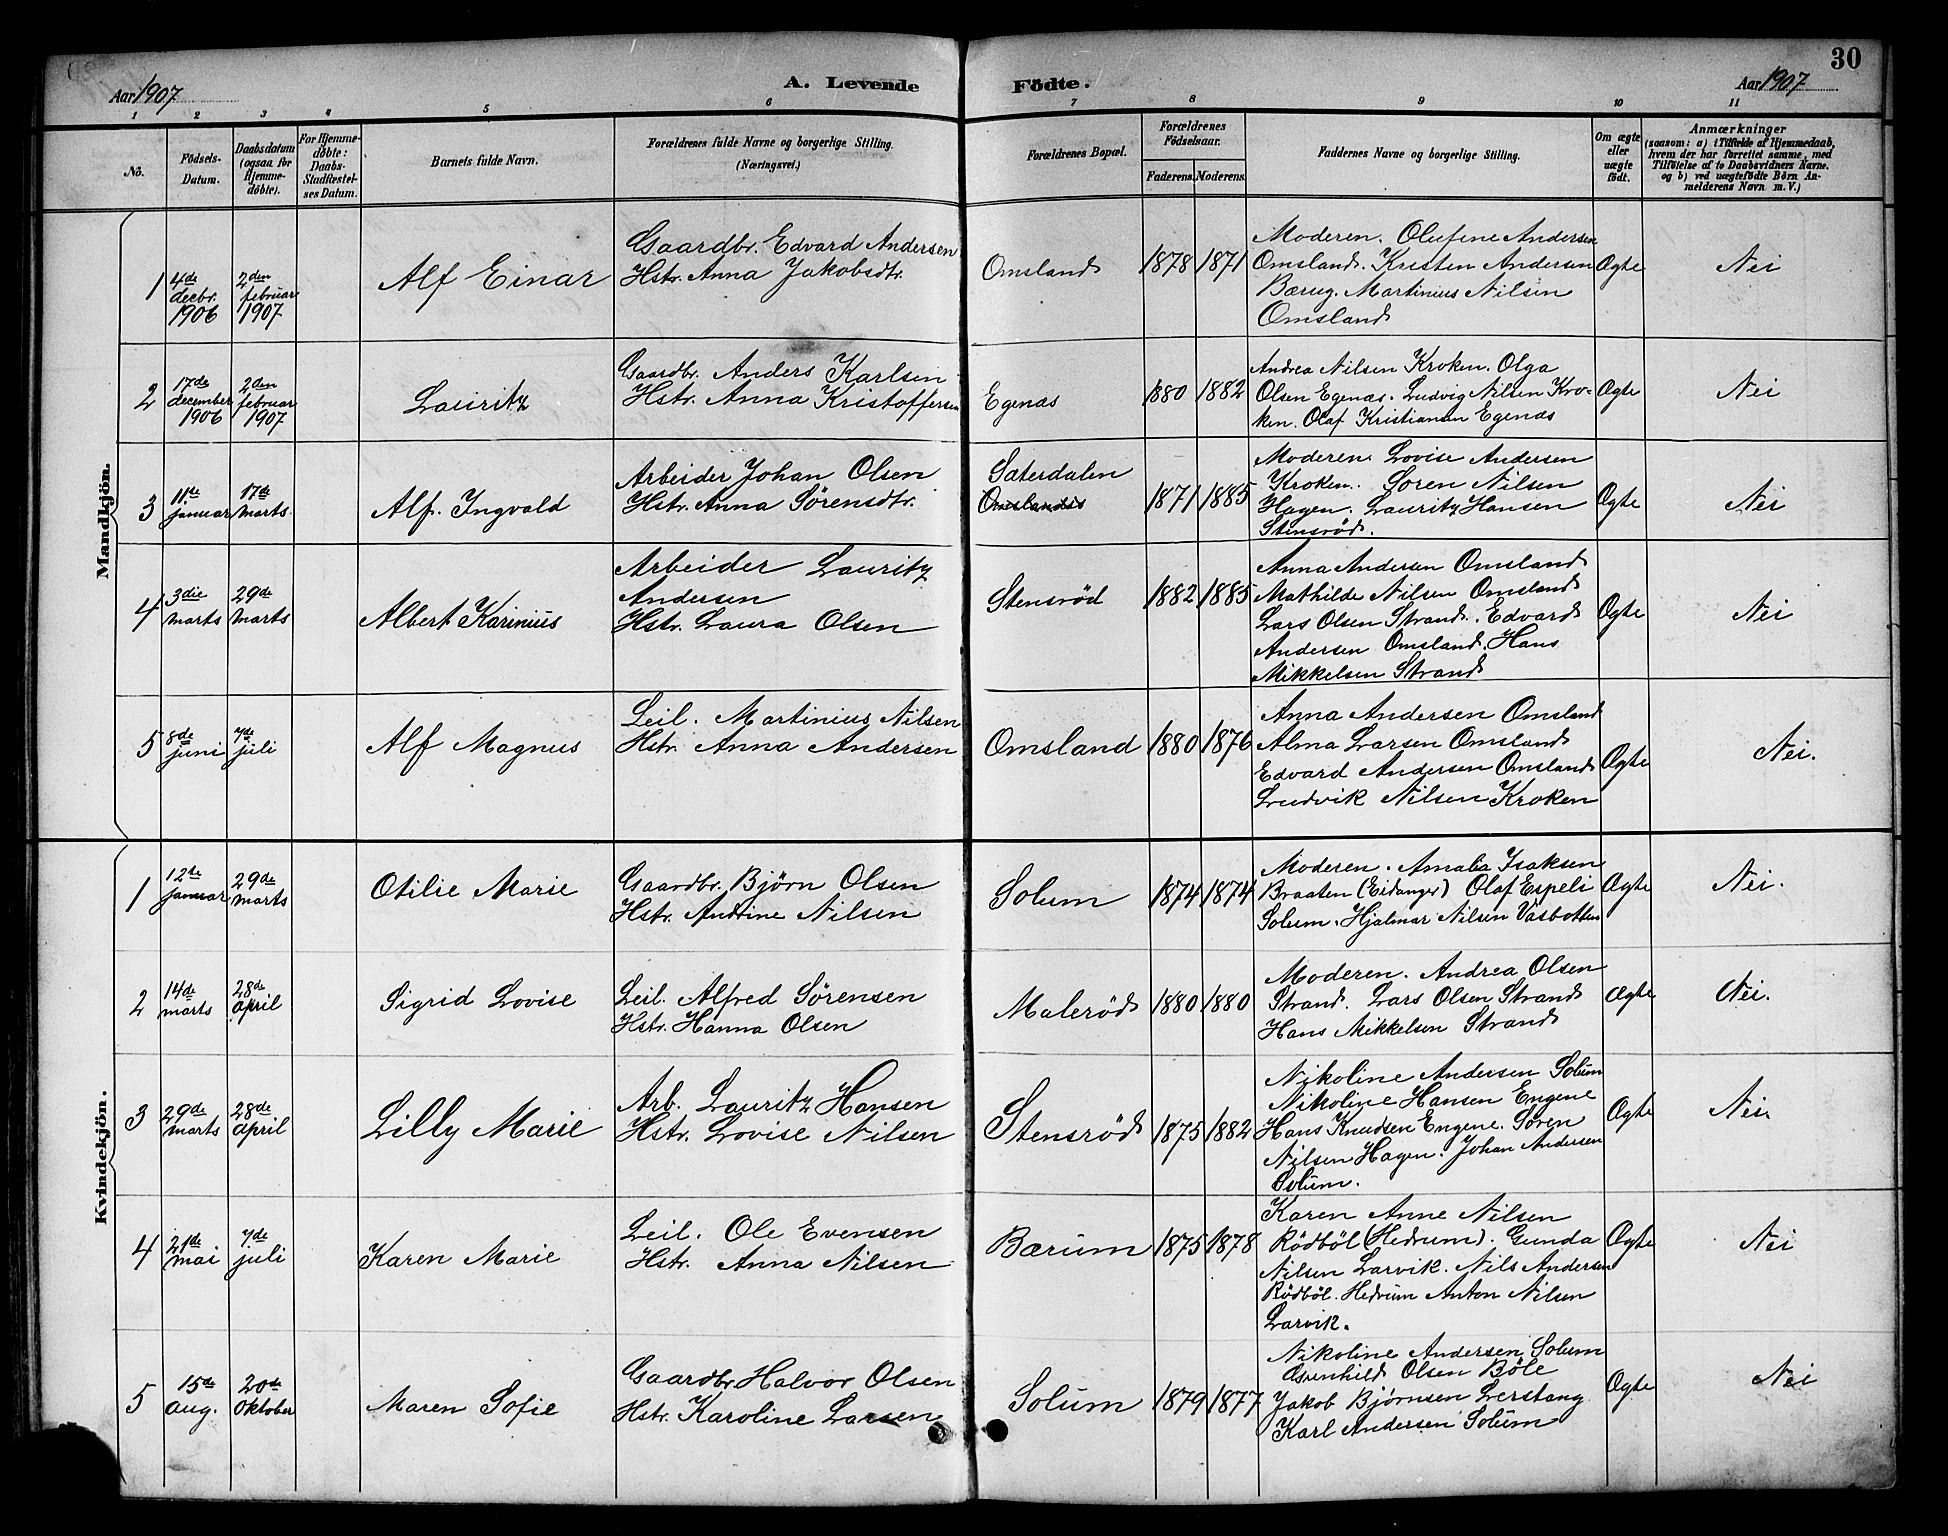 30
Aar 1907 A. Levende Födte. Aar 1907
1 2 3 4 5 6 7 8 9 10 11
No.
Födsels-
Datum.
Daabsdatum
(ogsaa for
Hjemme-
döbte).
For Hjemme-
döbte:
Daabs-
Stadfæstel-
ses Datum.
Barnets fulde Navn.
Forældrenes fulde Navne og borgerlige Stilling.
(Næringsvei.)
Forældrenes Bopæl.
Forældrenes
Födselsaar.
Faderens. Moderens.
Faddernes Navne og borgerlige Stilling.
Om ægte
eller
uægte
födt.
Anmærkninger
(saasom: a) i Tilfælde af Hjemmedaab,
hvem der har forrettet samme, med
Tilföielse af to Daabsvidners Navne.
og b) ved uægtefödte Börn An-
melderens Navn m. V.)
Mandkjön.
1
4de
decbr.
1906
2den
februar
1907
Alf Einar
Gaardbr. Edvard Andersen
Hstr. Anna Jakobsdtr.
Omsland
1878 1871
Moderen. Olufine Andersen
Omsland. Kristen Andersen
Bærug. Martinius Nilsen
Omsland
Ægte
Nei
2
17de
december
1906
2den
februar
1907
Lauritz
Gaardbr. Anders Karlsen
Hstr. Anna Kristoffersen
Egenæs
1880 1882
Andrea Nilsen Kroken. Olga
Olsen Egenæs. Ludvig Nilsen Kro-
ken. Olaf Kristiansen Egenæs
Ægte
Nei
3
11te
januar
17de
marts.
Alf. Ingvald
Arbeider Johan Olsen
Hstr. Anna Sörensdtr.
Saterdalen
1871 1885
Moderen. Lovise Andersen
Kroken. Soren Nilsen
Hagen. Lauritz Hansen
Stensröd.
Ægte
Nei
4
3die
marts
29de
marts
Albert Karinius
Arbeider Lauritz
Andersen
Hstr. Laura Olsen
Stensröd
1882 1885
Anna Andersen Omsland
Mathilde Nilsen Omsland
Lars Olsen Strand. Edvard
Andersen Omsland. Hans
Mikkelsen Strand
Ægte
Nei
5
8de
juni
7de
juli
Alf Magnus
Leil. Martinius Nilsen
Hstr. Anna Andersen
Omsland
1880 1876
Anna Andersen Omsland
Alma Larsen Omsland
Edvard Andersen Omsland
Ludvik Nilsen Kroken
Ægte
Nei.
Kvindekjön.
1
12te
januar
29de
marts
Otilie Marie
Gaardbr. Björn Olsen
Hstr. Andrine Nilsen
Solum
1874 1874
Moderen. Amalia Isaksen
Braaten (Eidanger) Olaf Espeli
Solum. Hjalmar Nilsen Vasbotten
Ægte
Nei.
2
14de
marts
28de
april
Sigrid Lovise
Leil. Alfred Sörensen
Hstr. Hanna Olsen
Maleröd
1880 1880
Moderen. Andrea Olsen
Strand. Lars Olsen Strand
Hans Mikkelsen Strand
Ægte
Nei.
3
29de
marts
28de
april
Lilly Marie
Arb. Lauritz Hansen
Hstr. Lovise Nilsen
Stensröd
1875 1882
Nikoline Andersen Solum
Nikoline Hansen Engene
Hans Knudsen Engene. Sören
Nilsen Hagen. Johan Andersen
Solum.
Ægte
Nei.
4
21de
mai
7de
juli
Karen Marie
Leil. Ole Evensen
Hstr. Anna Nilsen
Bærum
1875 1878
Karen Anne Nilsen
Rödböl (Hedrum). Gunda
Nilsen Larvik. Nils Andersen
Rödböl. Hedrum Anton Nilsen
Larvik.
Ægte
Nei
5
15de
aug.
20de
oktober
Maren Sofie
Gaardbr Halvor Olsen
Hstr. Karoline Larsen
Solum
1879 1877
Nikoline Andersen Solum
Gunhild Olsen Böle
Jakob Bjórnsen Lerstang
Karl Andersen Solum
Ægte
Nei